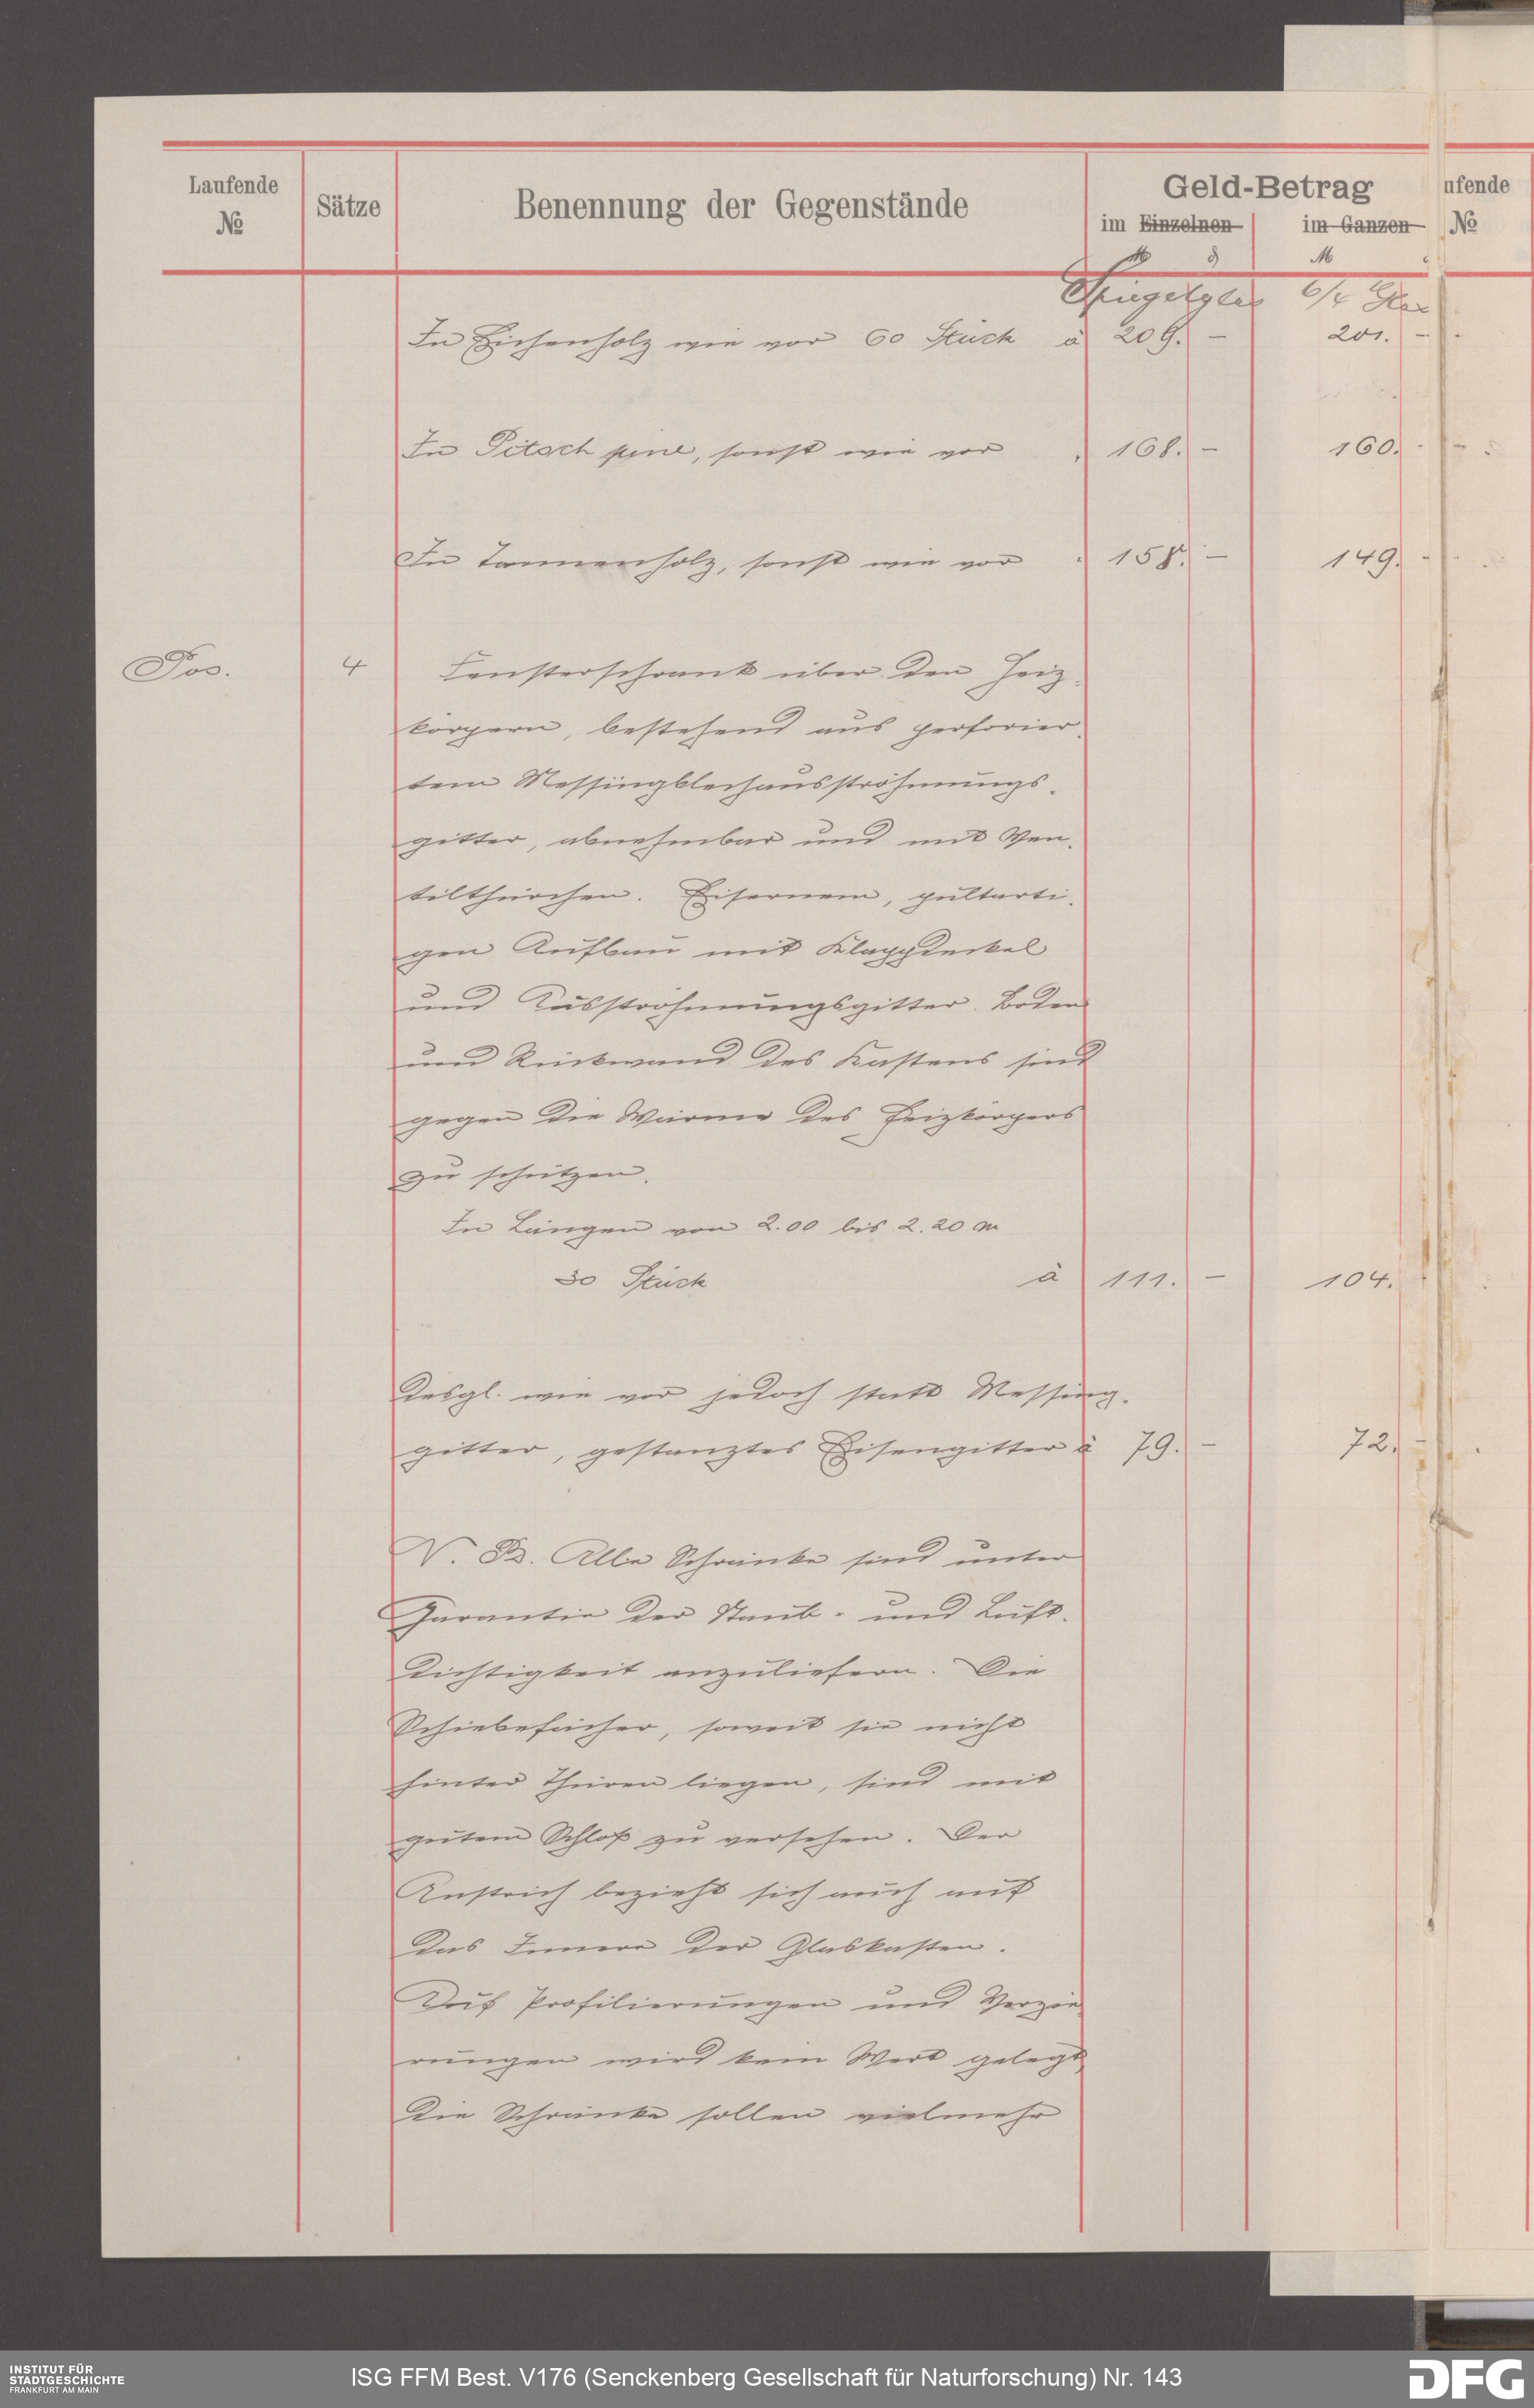 Laufende
No
Sätze
Benennung der Gegenstände
Geld-Betrag
im Einzelnen
im Ganzen
M
₰
M
ufende
No
Spiegelglas 6/4 Glas
In Eichenholz wie vor 60 Stück à 209. — 201. —
In Pitsch pine, sonst wie vor " 168. — 160. -
In Tannenholz, sonst wie vor " 158. — 149. -
Pos. 4 Fensterschrank über den Heiz-
körpern, bestehend aus perforier-
tem Messingblechausströhmungs-
gitter, abnehmbar und mit Ven-
tilthürchen. Eisernem, pultarti-
gen Aufbau mit Klappdeckel
und Ausströhmungsgitter. Boden
und Rückwand des Kastens sind
gegen die Wärme des Heizkörpers
zu schützen.
In Längen von 2.00 bis 2.20 m
30 Stück à 111. — 104.
Desgl. wie vor jedoch statt Messing-
gitter, gestanztes Eisengitter à 79. — 72. -
N. B. Alle Schränke sind unter
Garantie der Staub- und Luft-
dichtigkeit anzuliefern. Die
Schiebefächer, soweit sie nicht
hinter Thüren liegen, sind mit
gutem Schloß zu versehen. Der
Anstrich bezieht sich auch auf
das Innere der Glaskasten.
Auf Profilierungen und Verzie-
rungen wird kein Wert gelegt,
die Schränke sollen vielmehr
INSTITUT FÜR
STADTGESCHICHTE
FRANKFURT AM MAIN
ISG FFM Best. V176 (Senckenberg Gesellschaft für Naturforschung) Nr. 143
DFG